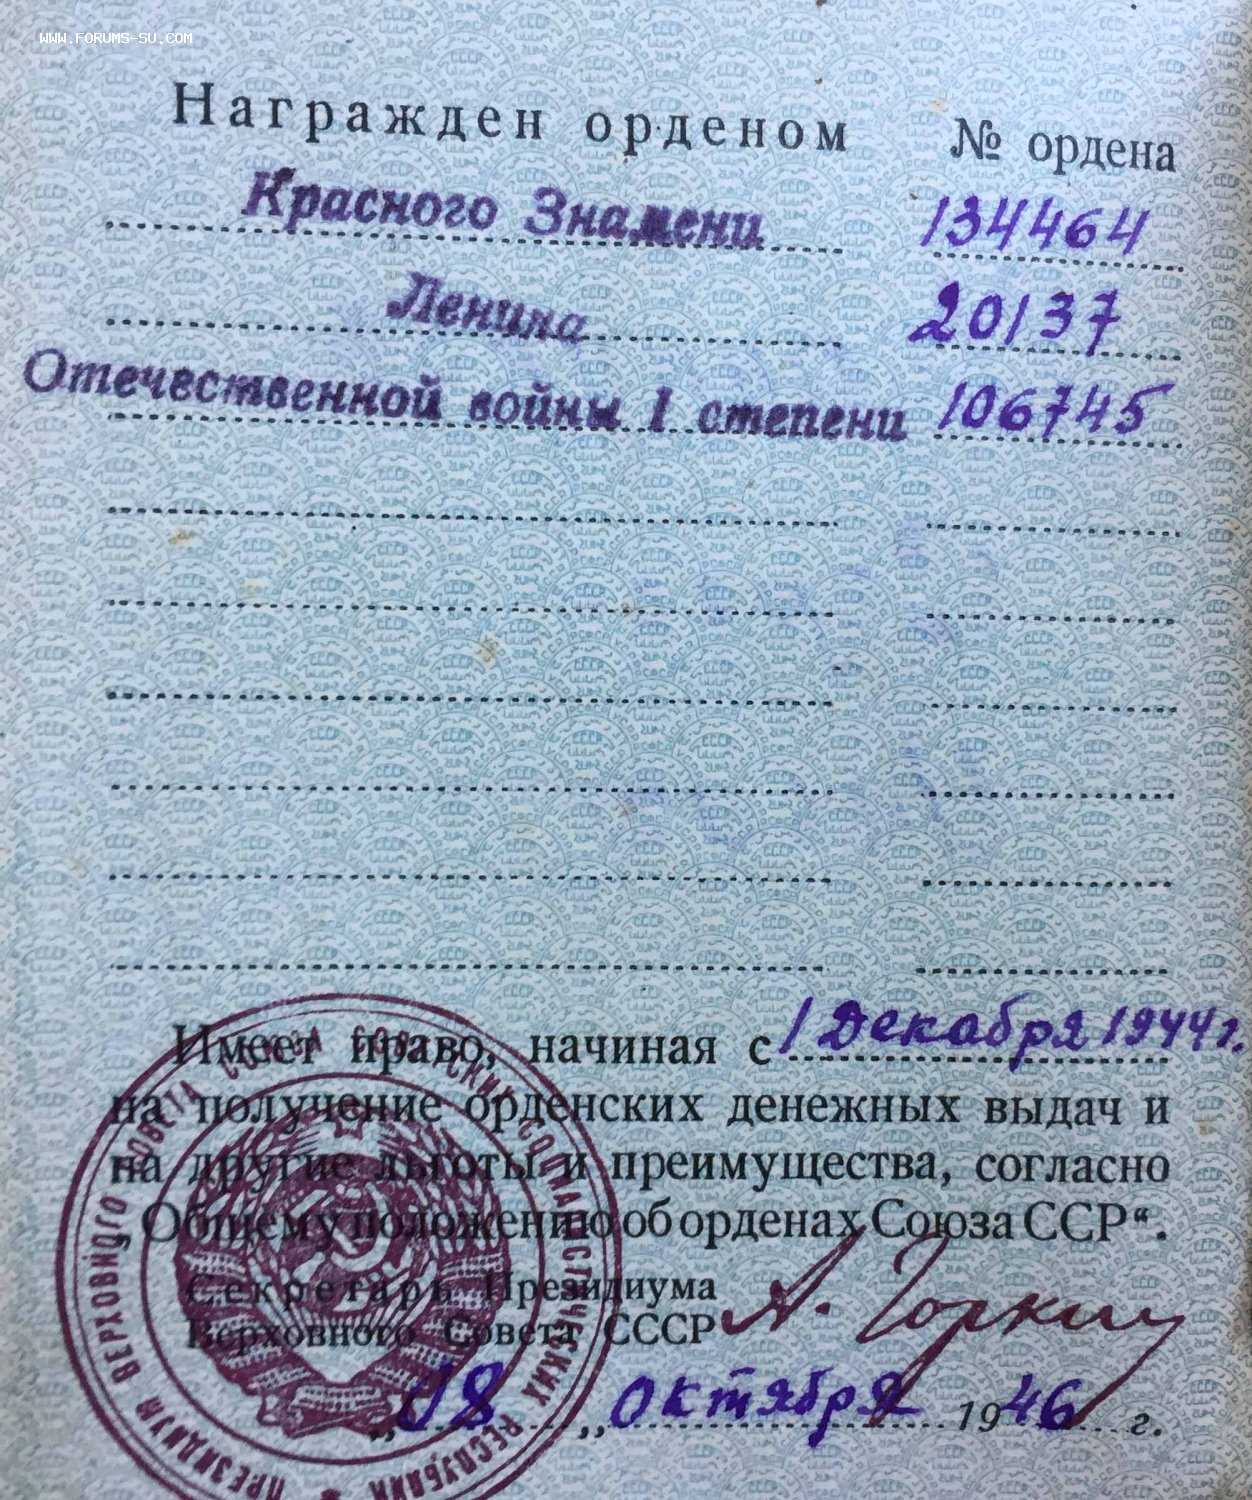 WWW.FORUMS-SU.COM
Награжден орденом № ордена
Красного Знамени 134464
Ленина 20137
Отечественной войны I степени 106745
Имеет право, начиная с 1 Декабря 1944 г.
на получение орденских денежных выдач и
на другие льготы и преимущества, согласно
„Общему положению об орденах Союза ССР“.
Секретарь Президиума
Верховного Совета СССР А. Горкин
„08„ октября 1946 г.
ПРЕЗИДИУМ ВЕРХОВНОГО СОВЕТА СОЮЗА СОВЕТСКИХ СОЦИАЛИСТИЧЕСКИХ РЕСПУБЛИК